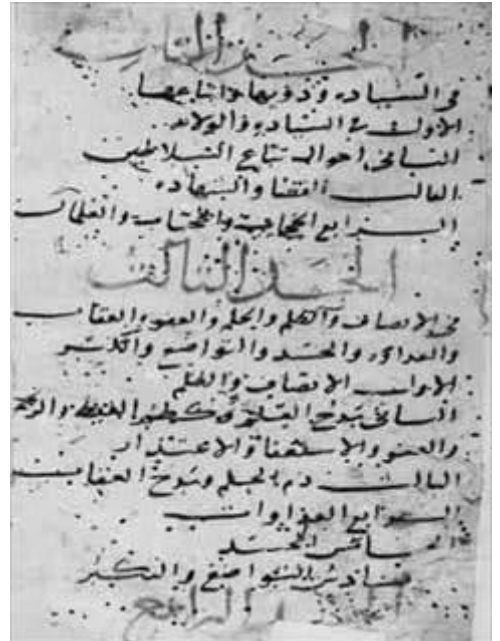 الحد الثاني
في السياده وذويها واتباعها
الاول في السياده والولايه
الثاني احوال تباع السلاطين
الثالث القضا والشهاده
الرابع والغلمان
الحد الثالث
في الانصاف والظلم والحلم والعفو والعقاب
والعداوه والحسد والتواضع والكبر
الاول الانصاف والظلم
الثاني مدح الحلم وكظم الغيظ
والعفو والاستعفا والاعتذار
الثالث ذم الحلم ومدح العقاب
الرابع العداوات
الخامس الحسد
السادس التواضع والتكبر
الحد الرابع